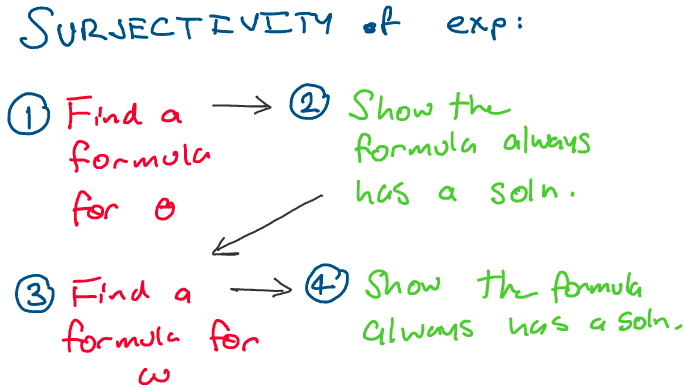 SURJECTIVITY of exp:
① Find a
formula
for θ
② Show the
formula always
has a soln.
③ Find a
formula for
ω
④ Show the formula
always has a soln.